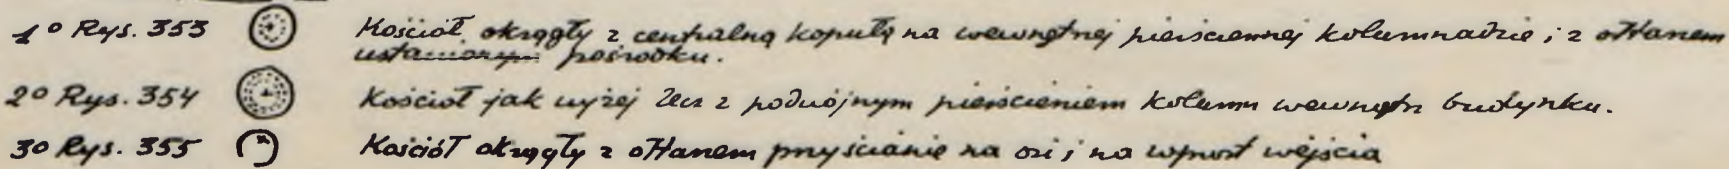 1° Rys. 353 Kościół okrągły z centralną kopułą na wewnętrznej pierściennej kolumnadzie; z ołtarzem
ustawionym pośrodku.
2° Rys. 354 Kościoł jak wyżej lecz z podwójnym pierścieniem kolumn wewnątrz budynku.
3° Rys. 355 Kościół okrągły z ołtarzem przy ścianie na osi; na wprost wejścia